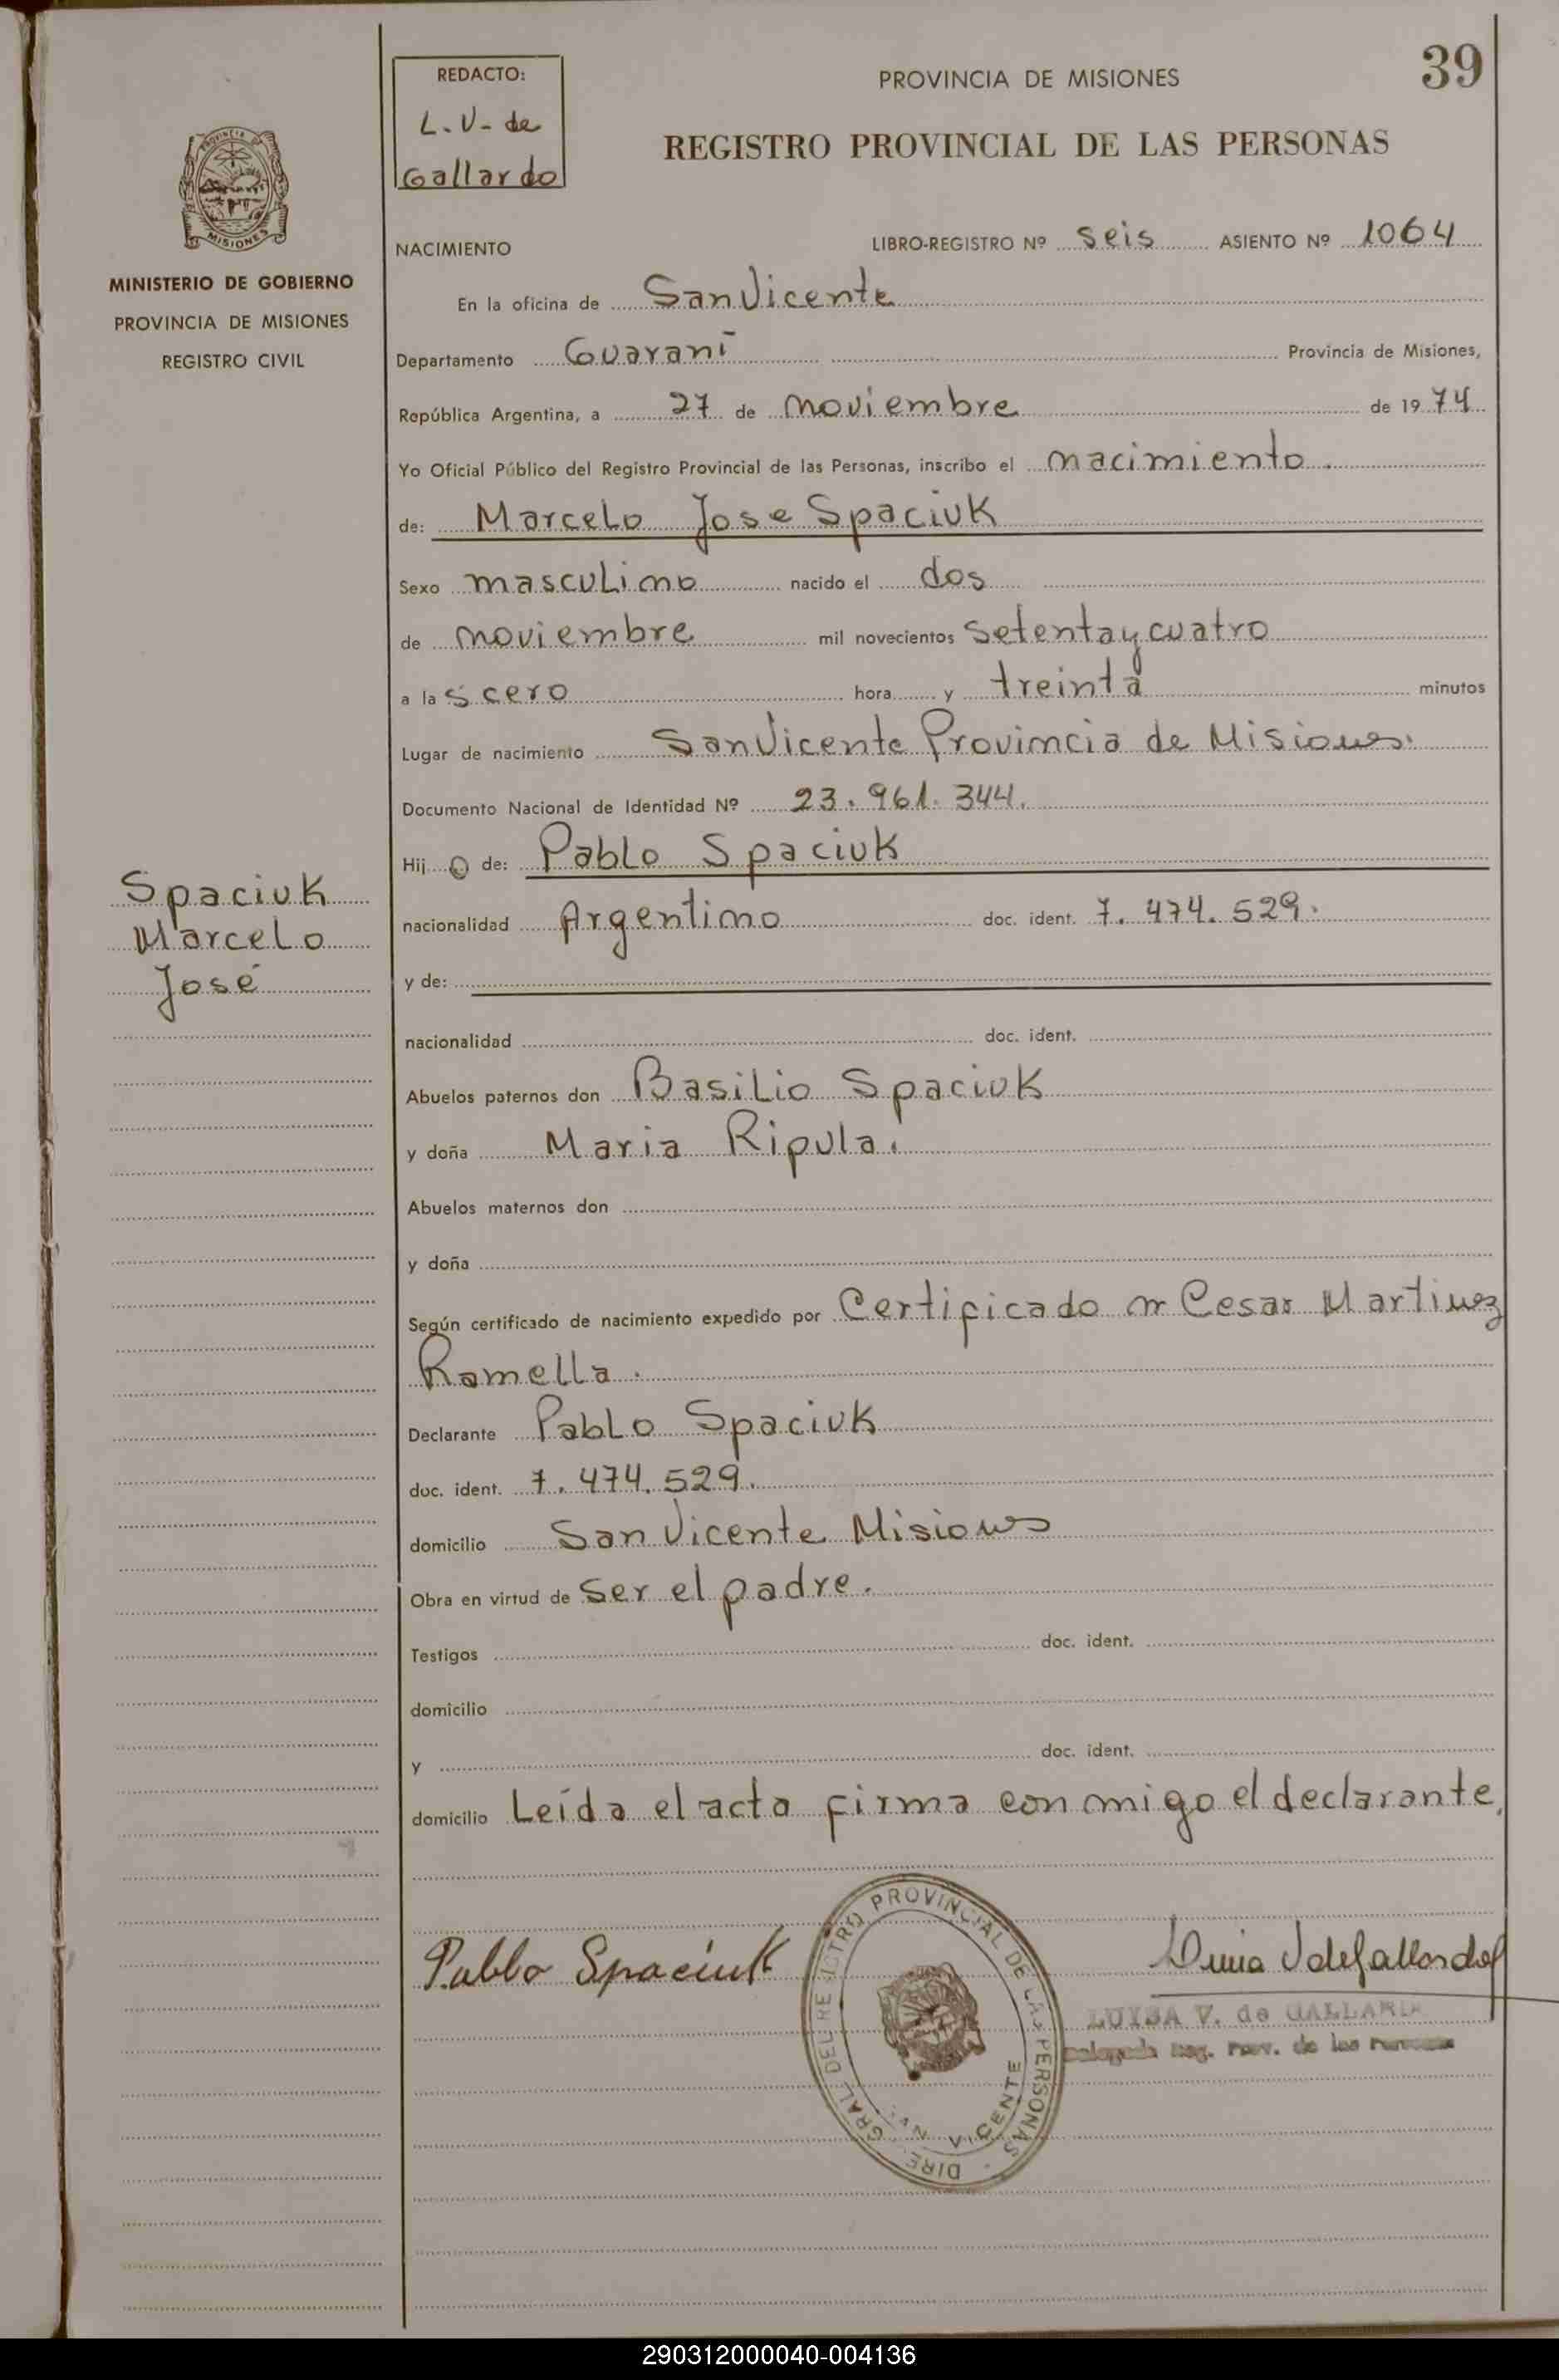 39
REDACTO:
L.V- de
Gallardo
PROVINCIA DE MISIONES
REGISTRO PROVINCIAL DE LAS PERSONAS
PROVINCIA
MISIONES
MINISTERIO DE GOBIERNO
PROVINCIA DE MISIONES
REGISTRO CIVIL
NACIMIENTO LIBRO-REGISTRO Nº seis ASIENTO Nº 1064
En la oficina de San Vicente
Departamento Guaraní Provincia de Misiones,
República Argentina, a 27 de noviembre de 1974
Yo Oficial Público del Registro Provincial de las Personas, inscribo el nacimiento.
de: Marcelo Jose Spaciuk
Sexo masculino nacido el dos
de noviembre mil novecientos setenta y cuatro
a las cero hora y treinta minutos
Lugar de nacimiento San Vicente Provincia de Misiones.
Documento Nacional de Identidad Nº 23.961.344.
Hijo de: Pablo Spaciuk
nacionalidad Argentino doc. ident. 7.474.529.
y de:
nacionalidad doc. ident.
Spaciuk
Marcelo
José
Abuelos paternos don Basilio Spaciuk
y doña Maria Ripula.
Abuelos maternos don
y doña
Según certificado de nacimiento expedido por Certificado Cesar Martinez
Ramella.
Declarante Pablo Spaciuk
doc. ident. 7.474.529.
domicilio San Vicente Misiones
Obra en virtud de ser el padre.
Testigos doc. ident.
domicilio
y doc. ident.
domicilio Leída el acta firma conmigo el declarante,
Pablo Spaciuk
DIRE. GRAL DEL REGISTRO PROVINCIAL DE LAS PERSONAS
SAN VICENTE
LUISA V. de GALLARDO
Delegada Reg. Prov. de las Personas
290312000040-004136